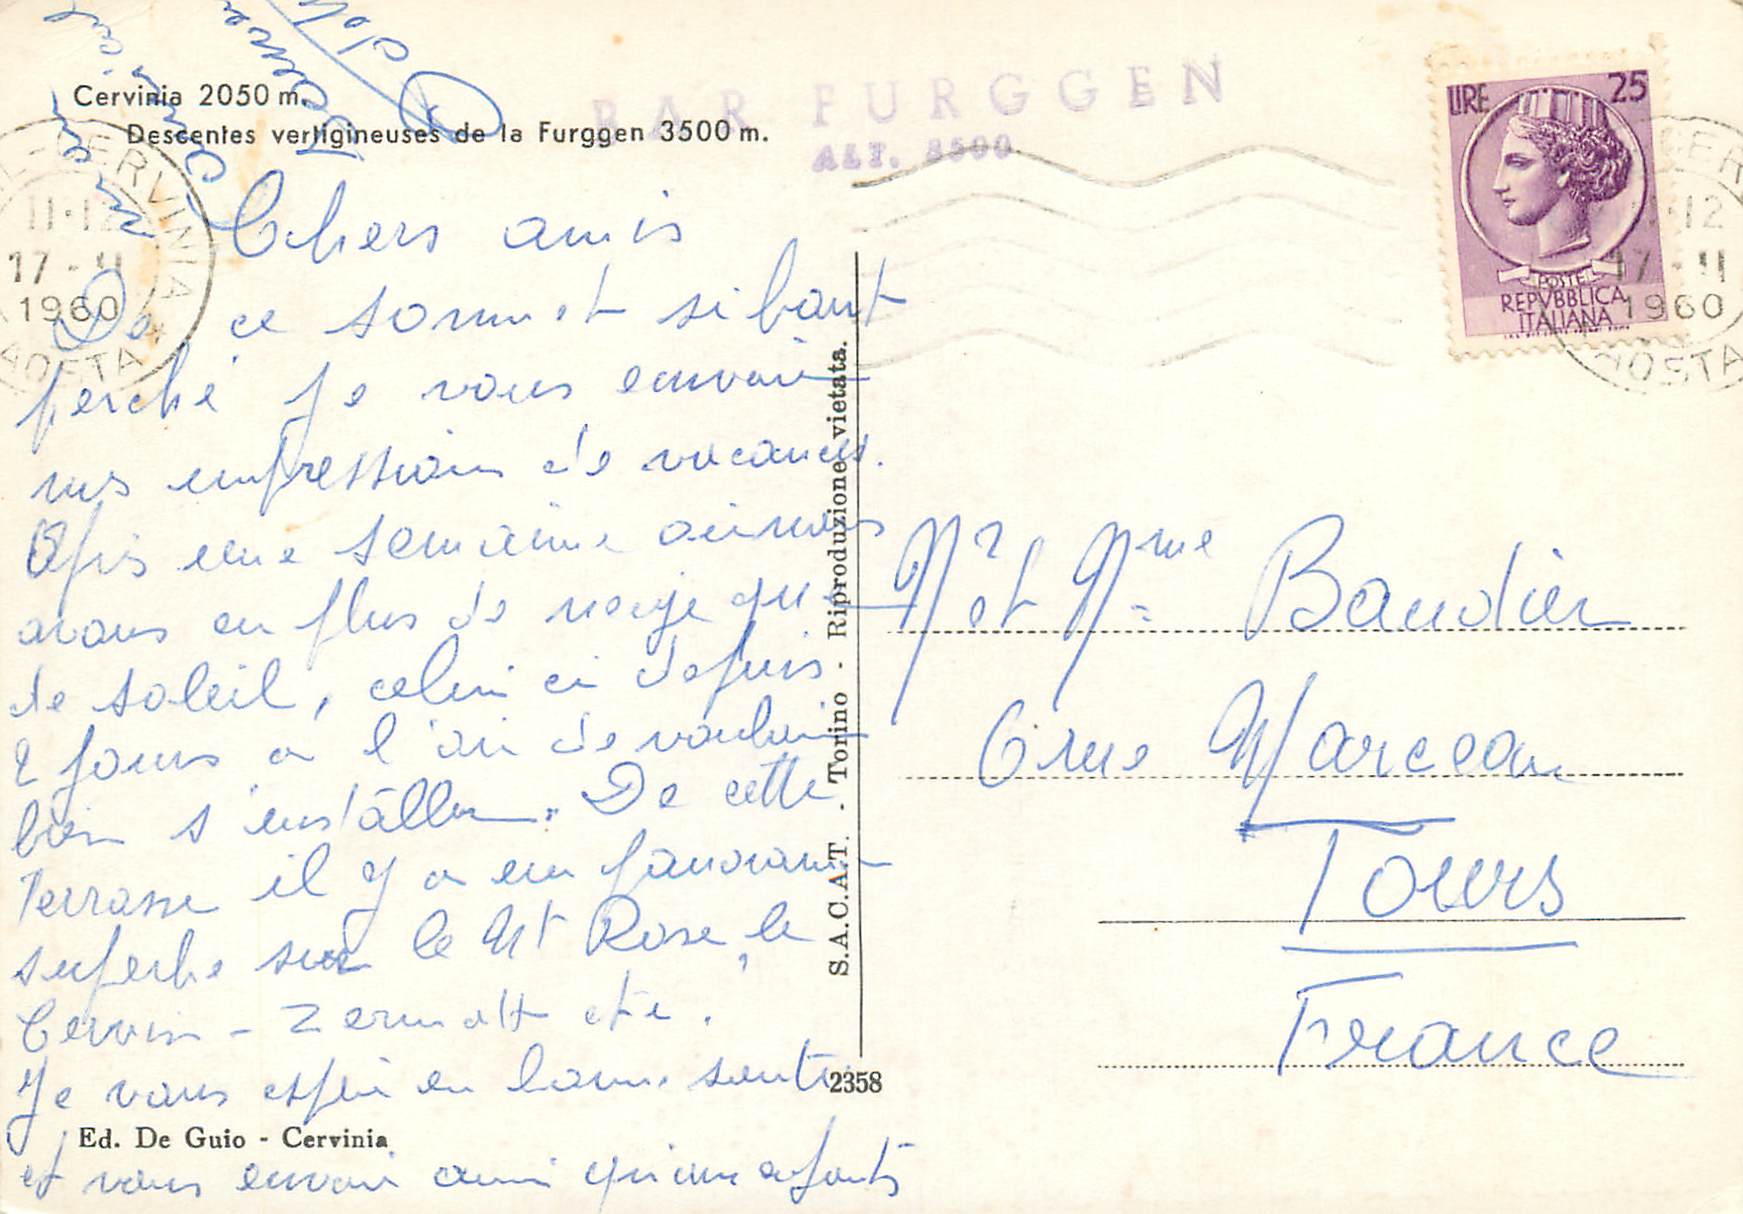 Cervinia 2050 m.
Descentes vertigineuses de la Furggen 3500 m.
BAR FURGGEN
ALT. 3500
LIRE 25
POSTE
REPVBBLICA
ITALIANA
CERVINIA
11-12
17-11
1960
AOSTA
12
17-11
1960
AOSTA
Chers amis
De ce sommet si haut
perché je vous envoie
mes impressions de vacances.
Après une semaine où nous
avons eu plus de neige que
de soleil, celui ci depuis
2 jours a l'air de vouloir
bien s'installer. De cette
Terrasse il y a un panorama
superbe sur le Mt Rose, le
Cervin - Zermatt etc.
Je vous espère en bonne santé
et vous envoie ainsi qu'aux enfants
Mr et Mme Baudier
6 rue Marceau
Tours
France
S.A.C.A.T. - Torino - Riproduzione vietata.
2358
Ed. De Guio - Cervinia